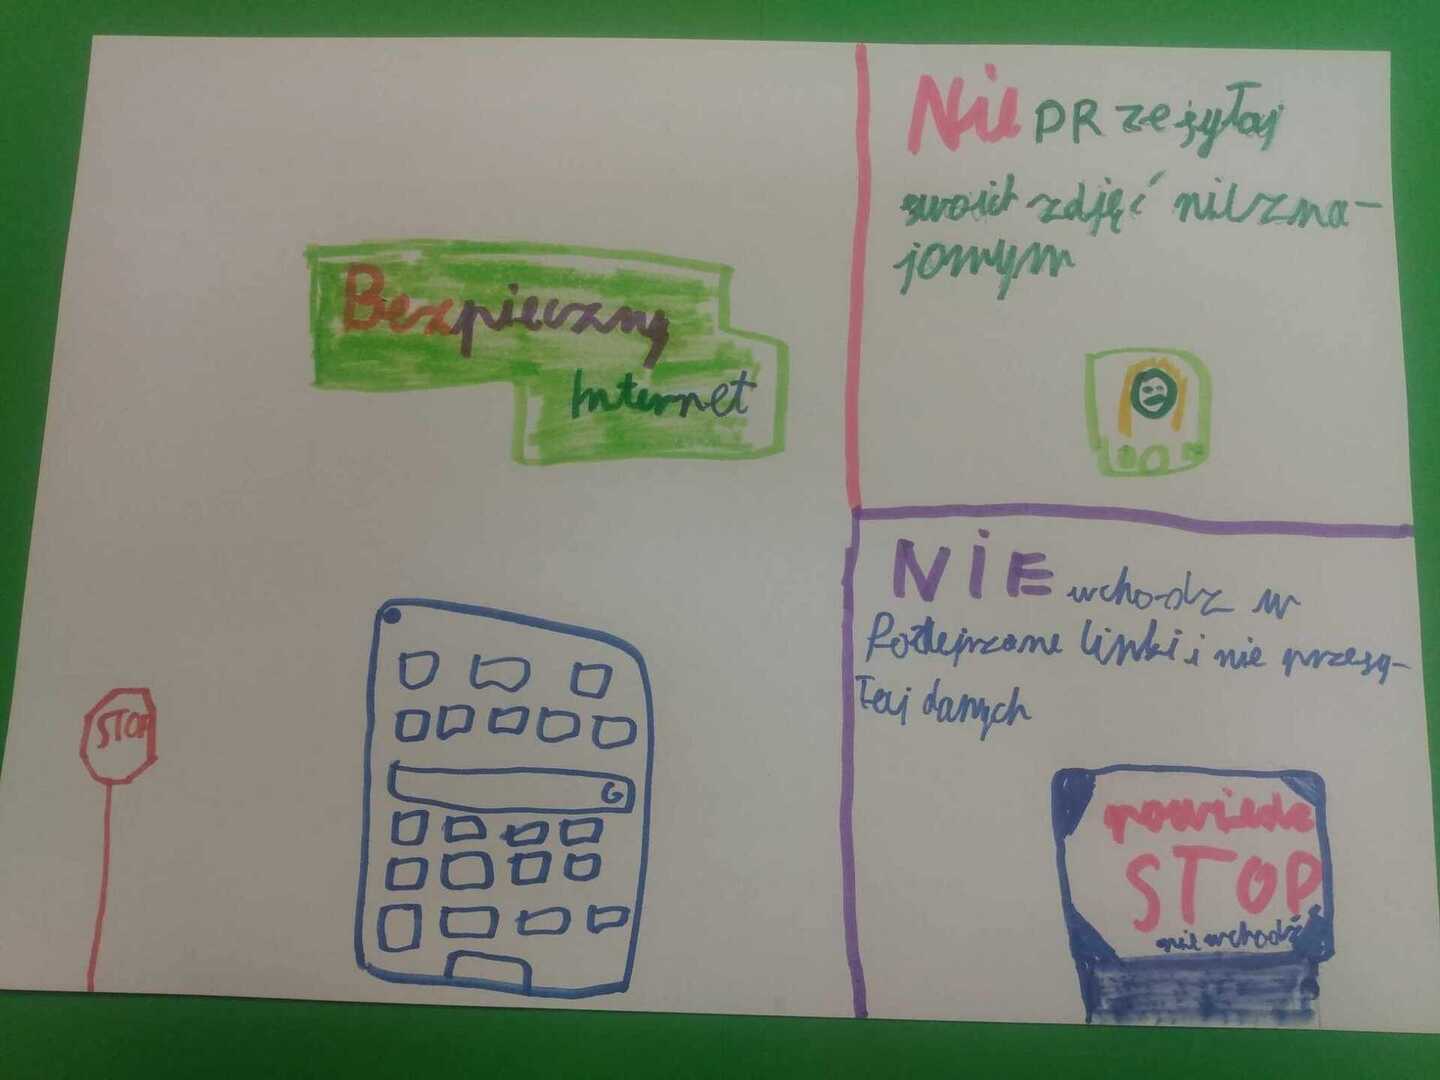 Bezpieczny
Internet
STOP
G
Nie PRzesyłaj
swoich zdjęć niezna-
jomym
NIE wchodz w
Podejrzane linki i nie przesy-
łaj danych
powiedz
STOP
nie wchodź